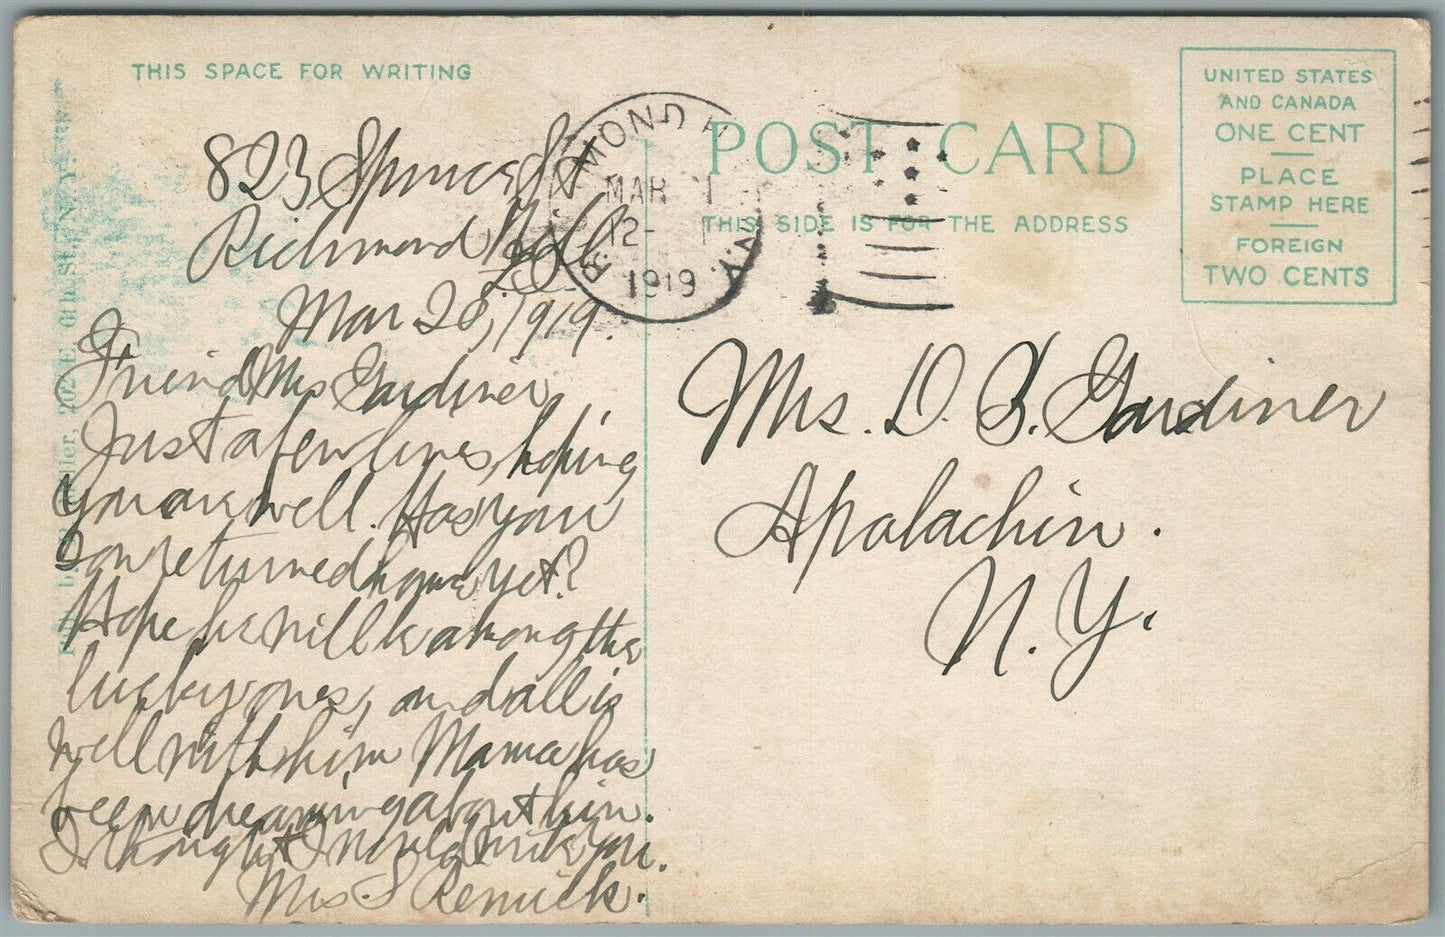 THIS SPACE FOR WRITING
823 Spruce St
Richmond Hill
L.I.
Mar 28, 1919.
Friend Mrs Gardiner,
Just a few lines, hoping
you are well. Has your
son returned home yet?
Hope he will be among the
lucky ones, and all is
well with him Mama has
been dreaming about him.
I thought I would write you.
Mrs. S Renwick.
202 E. 6th. St., N. Y.
MOND H
MAR
12-
1919
N.Y.
POST CARD
THIS SIDE IS FOR THE ADDRESS
UNITED STATES
AND CANADA
ONE CENT
PLACE
STAMP HERE
FOREIGN
TWO CENTS
Mrs. D. S. Gardiner
Apalachin.
N. Y.